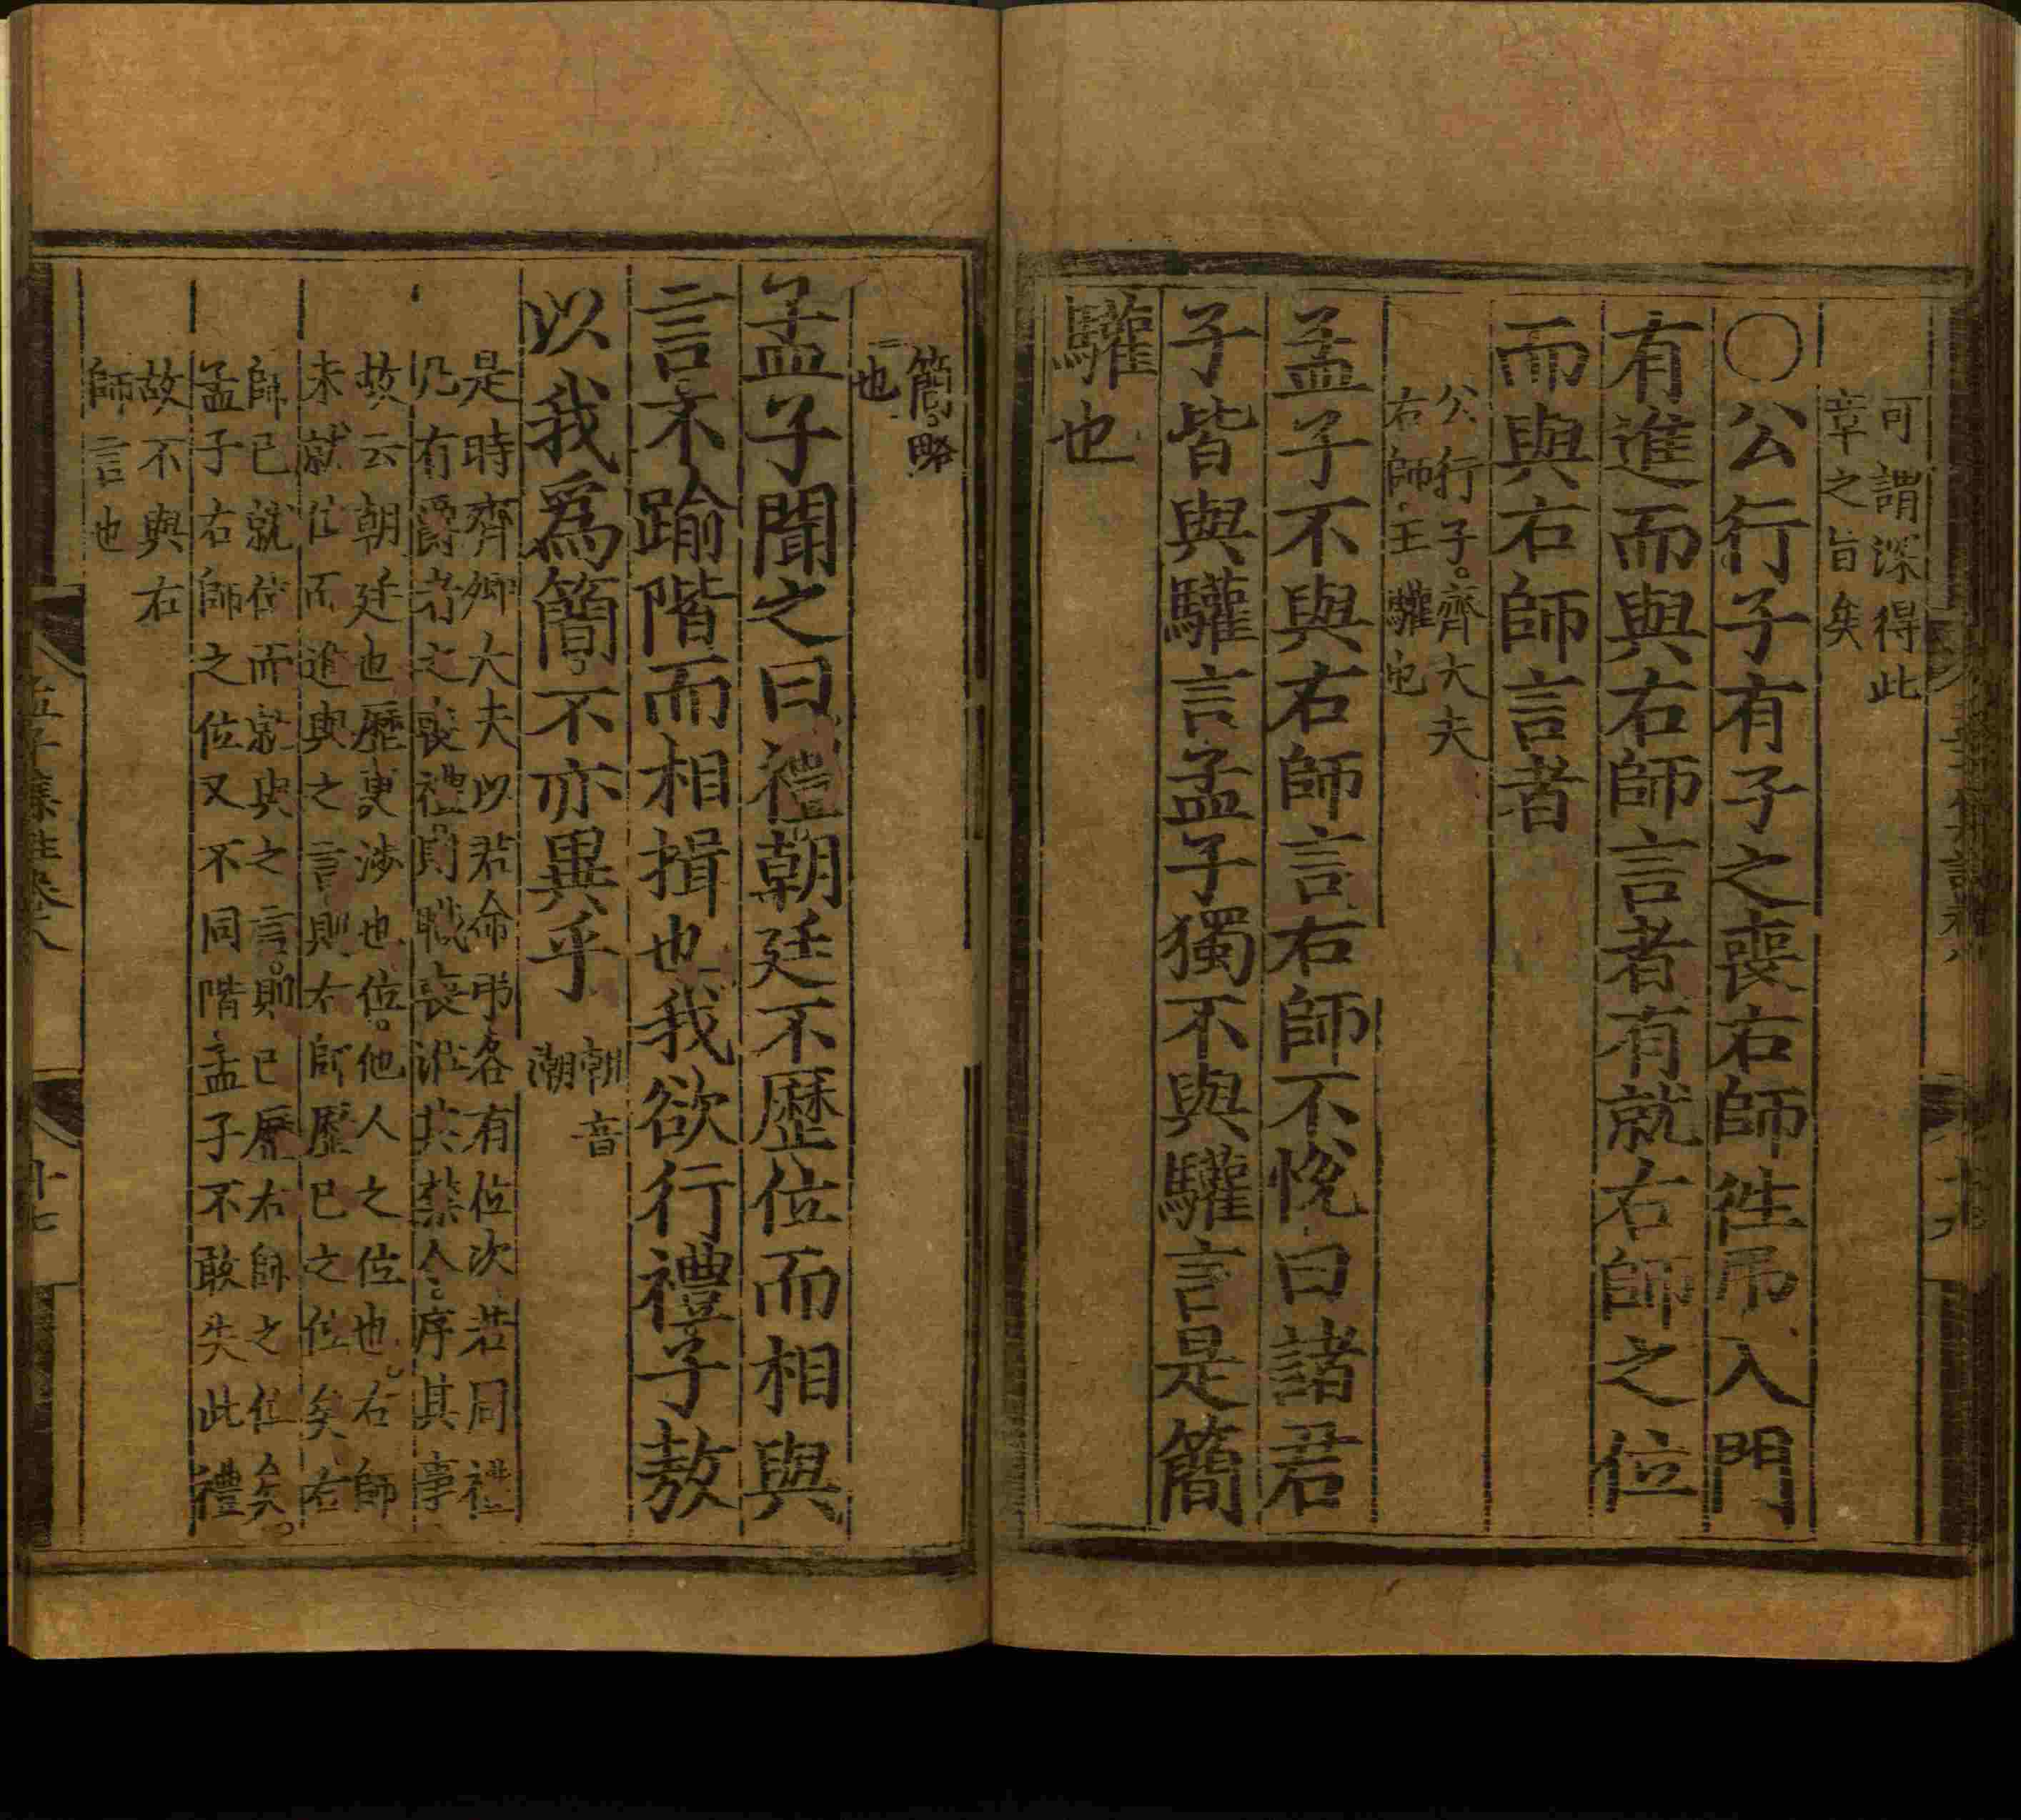 可謂深得此
章之旨矣
〇公行子有子之喪右師徃吊入門
有進而與右師言者有就右師之位
而與右師言者
公行子齊大夫
右師王驩也
孟子不與右師言右師不悅曰諸君
子皆與驩言孟子獨不與驩言是簡
驩也
簡略
也
孟子聞之曰禮朝廷不歷位而相與
言不踰階而相揖也我欲行禮子敖
以我爲簡不亦異乎
朝音
潮
是時齊卿大夫以君命吊各有位次若同禮
凡有爵者之喪禮則職喪涖其禁令序其事
故云朝廷也歷更涉也位他人之位也右師
未就位而進與之言則右師歷己之位矣右
師已就位而就與之言則己歷右師之位矣
孟子右師之位又不同階孟子不敢失此禮
故不與右
師言也
孟子集註卷八
十七